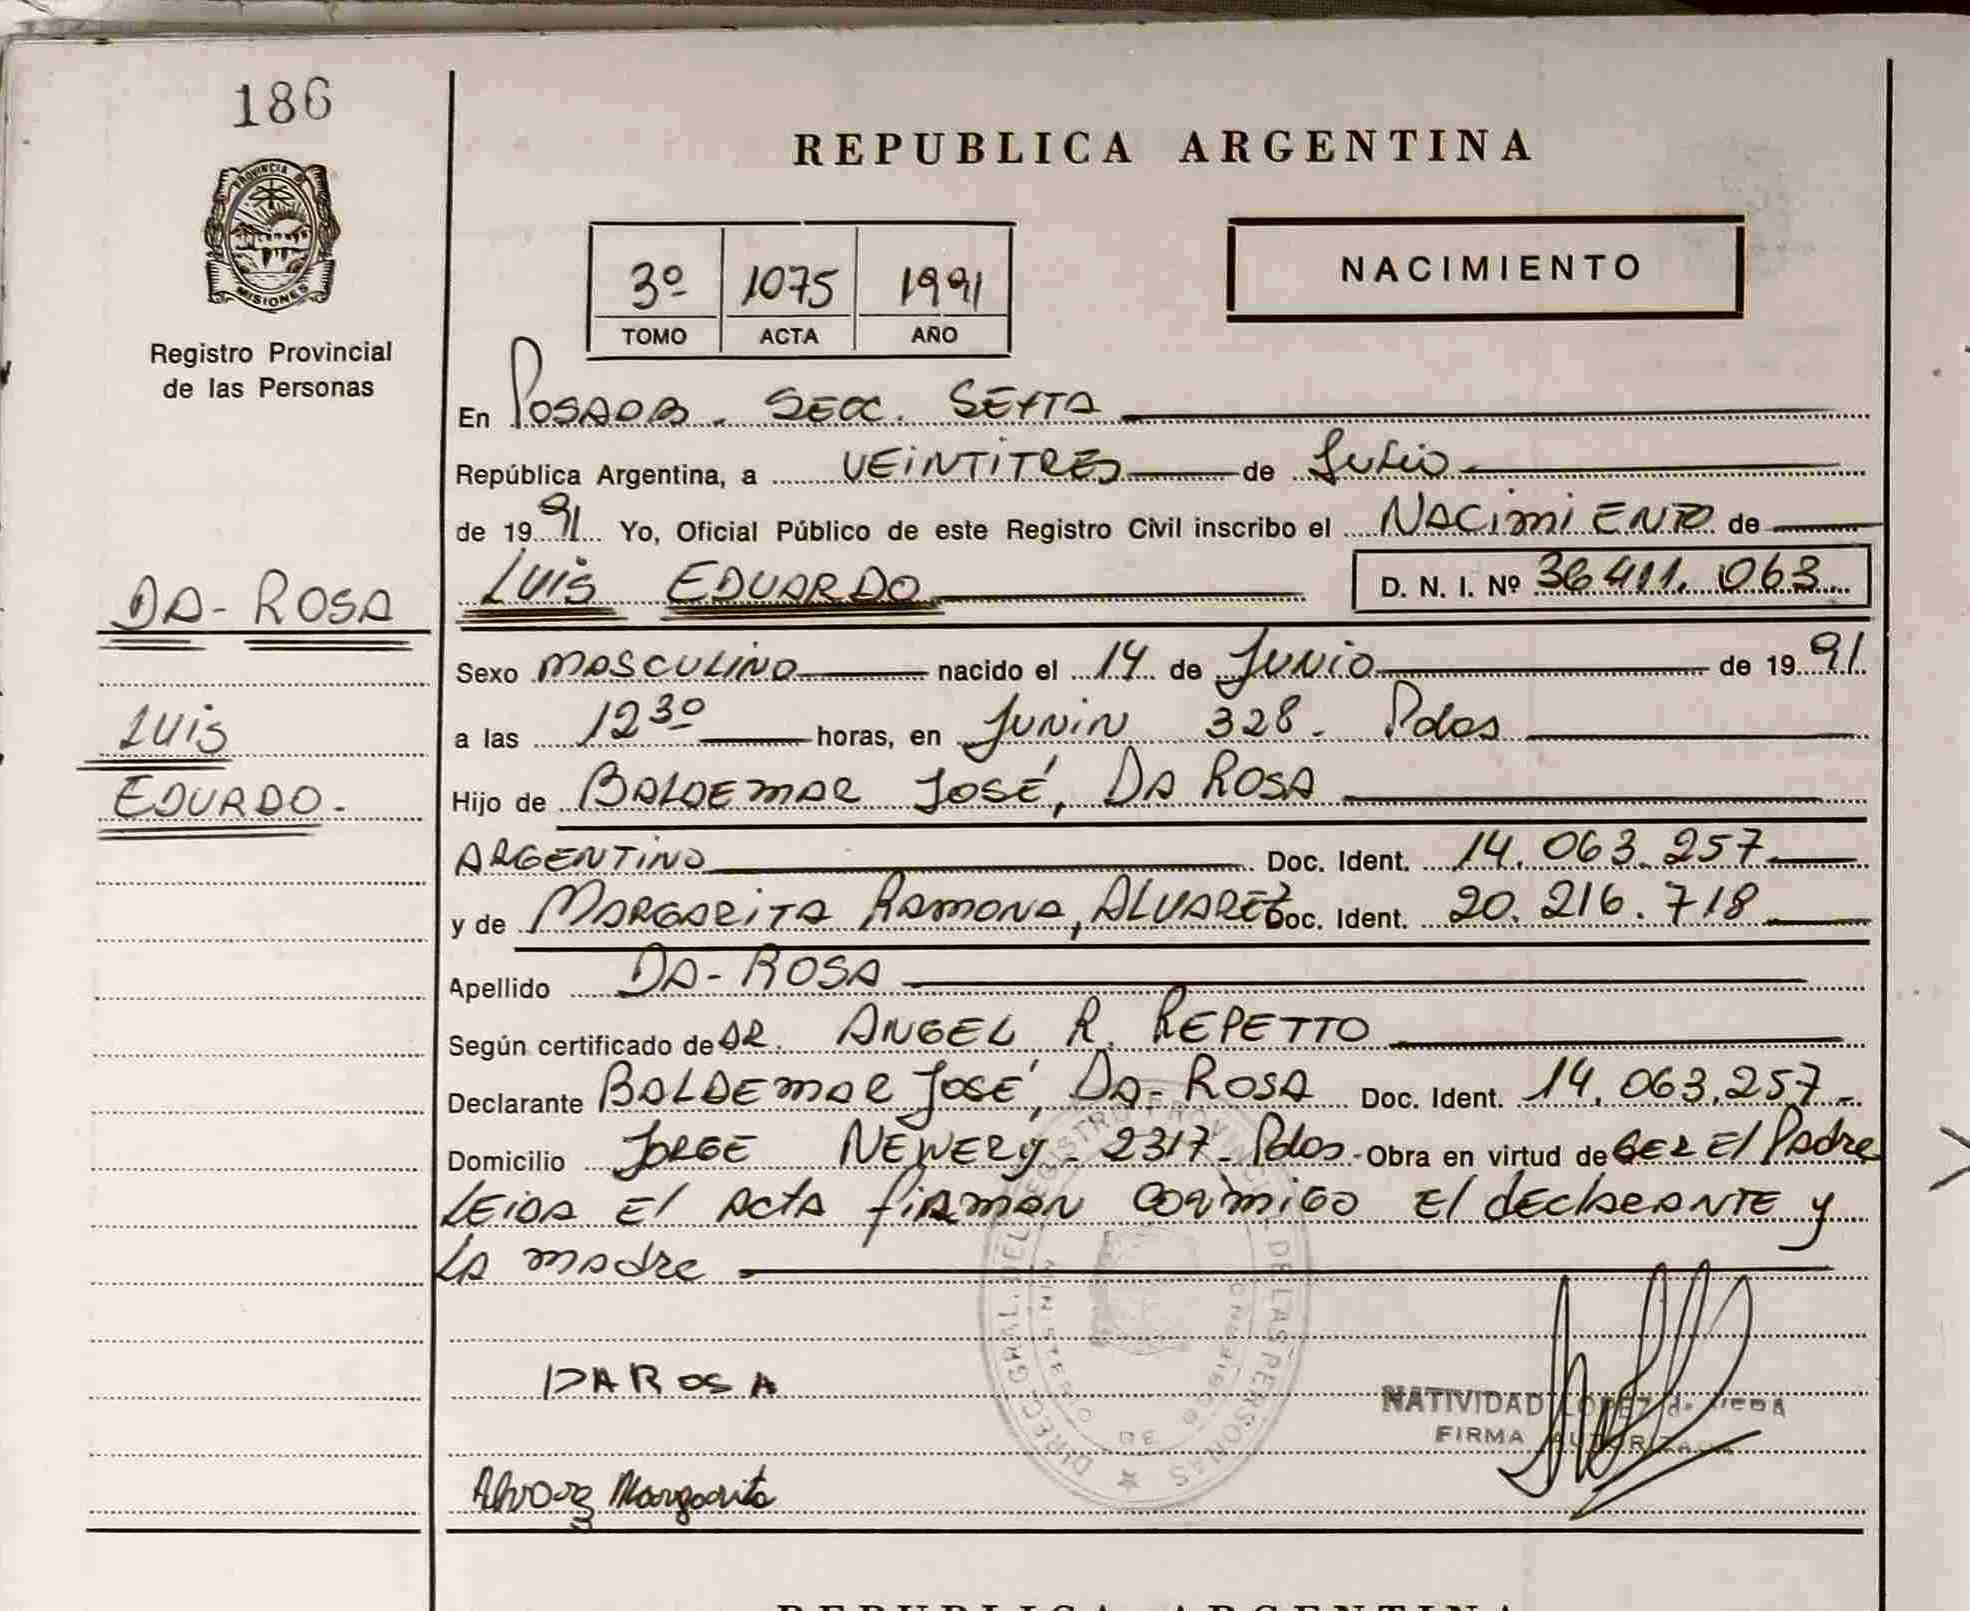 186
PROVINCIA DE
MISIONES
Registro Provincial
de las Personas
DA-ROSA
Luis
EDURDO-
REPUBLICA ARGENTINA
3º 1075 1991
TOMO ACTA AÑO
NACIMIENTO
En POSADAS. SECC. SEXTA
República Argentina, a VEINTITRES de Julio
de 1991 Yo, Oficial Público de este Registro Civil inscribo el NACIMIENTO de
LUIS EDUARDO D. N. I. Nº 36411.063
Sexo MASCULINO nacido el 14 de Junio de 1991
a las 12 30 horas, en Junin 328- Pdas
Hijo de BALDEMAR José, DA ROSA
ARGENTINO Doc. Ident. 14.063.257
y de MARGARITA RAMONA, ALVAREZ Doc. Ident. 20.216.718
Apellido DA-ROSA
Según certificado de DR. ANGEL R. REPETTO
Declarante BALDEMAR José, DA-ROSA Doc. Ident. 14.063.257-
Domicilio JORGE NEWERY- 2317- Pdas- Obra en virtud de SER El Padre
LEIDA El Acta firman conmigo El declarante y
LA madre
DAROSA
NATIVIDAD LOPEZ de
FIRMA AUTORIZADA
Alvarez Margarita
DIREC. GRAL. DEL REGISTRO PROVINCIAL DE LAS PERSONAS
MINISTERIO DE GOBIERNO
REPUBLICA ARGENTINA